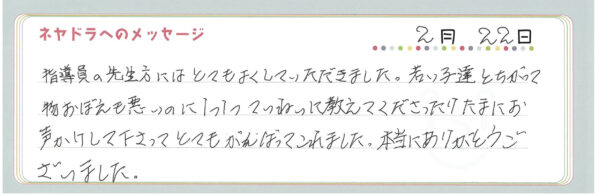 ネヤドラへのメッセージ
2月 22日
指導員の先生方にはとてもよくしていただきました。若い子達とちがって
物おぼえも悪いのに1つ1つていねいに教えてくださったりたまにお
声かけして下さってとてもがんばってこれました。本当にありがとうご
ざいました。